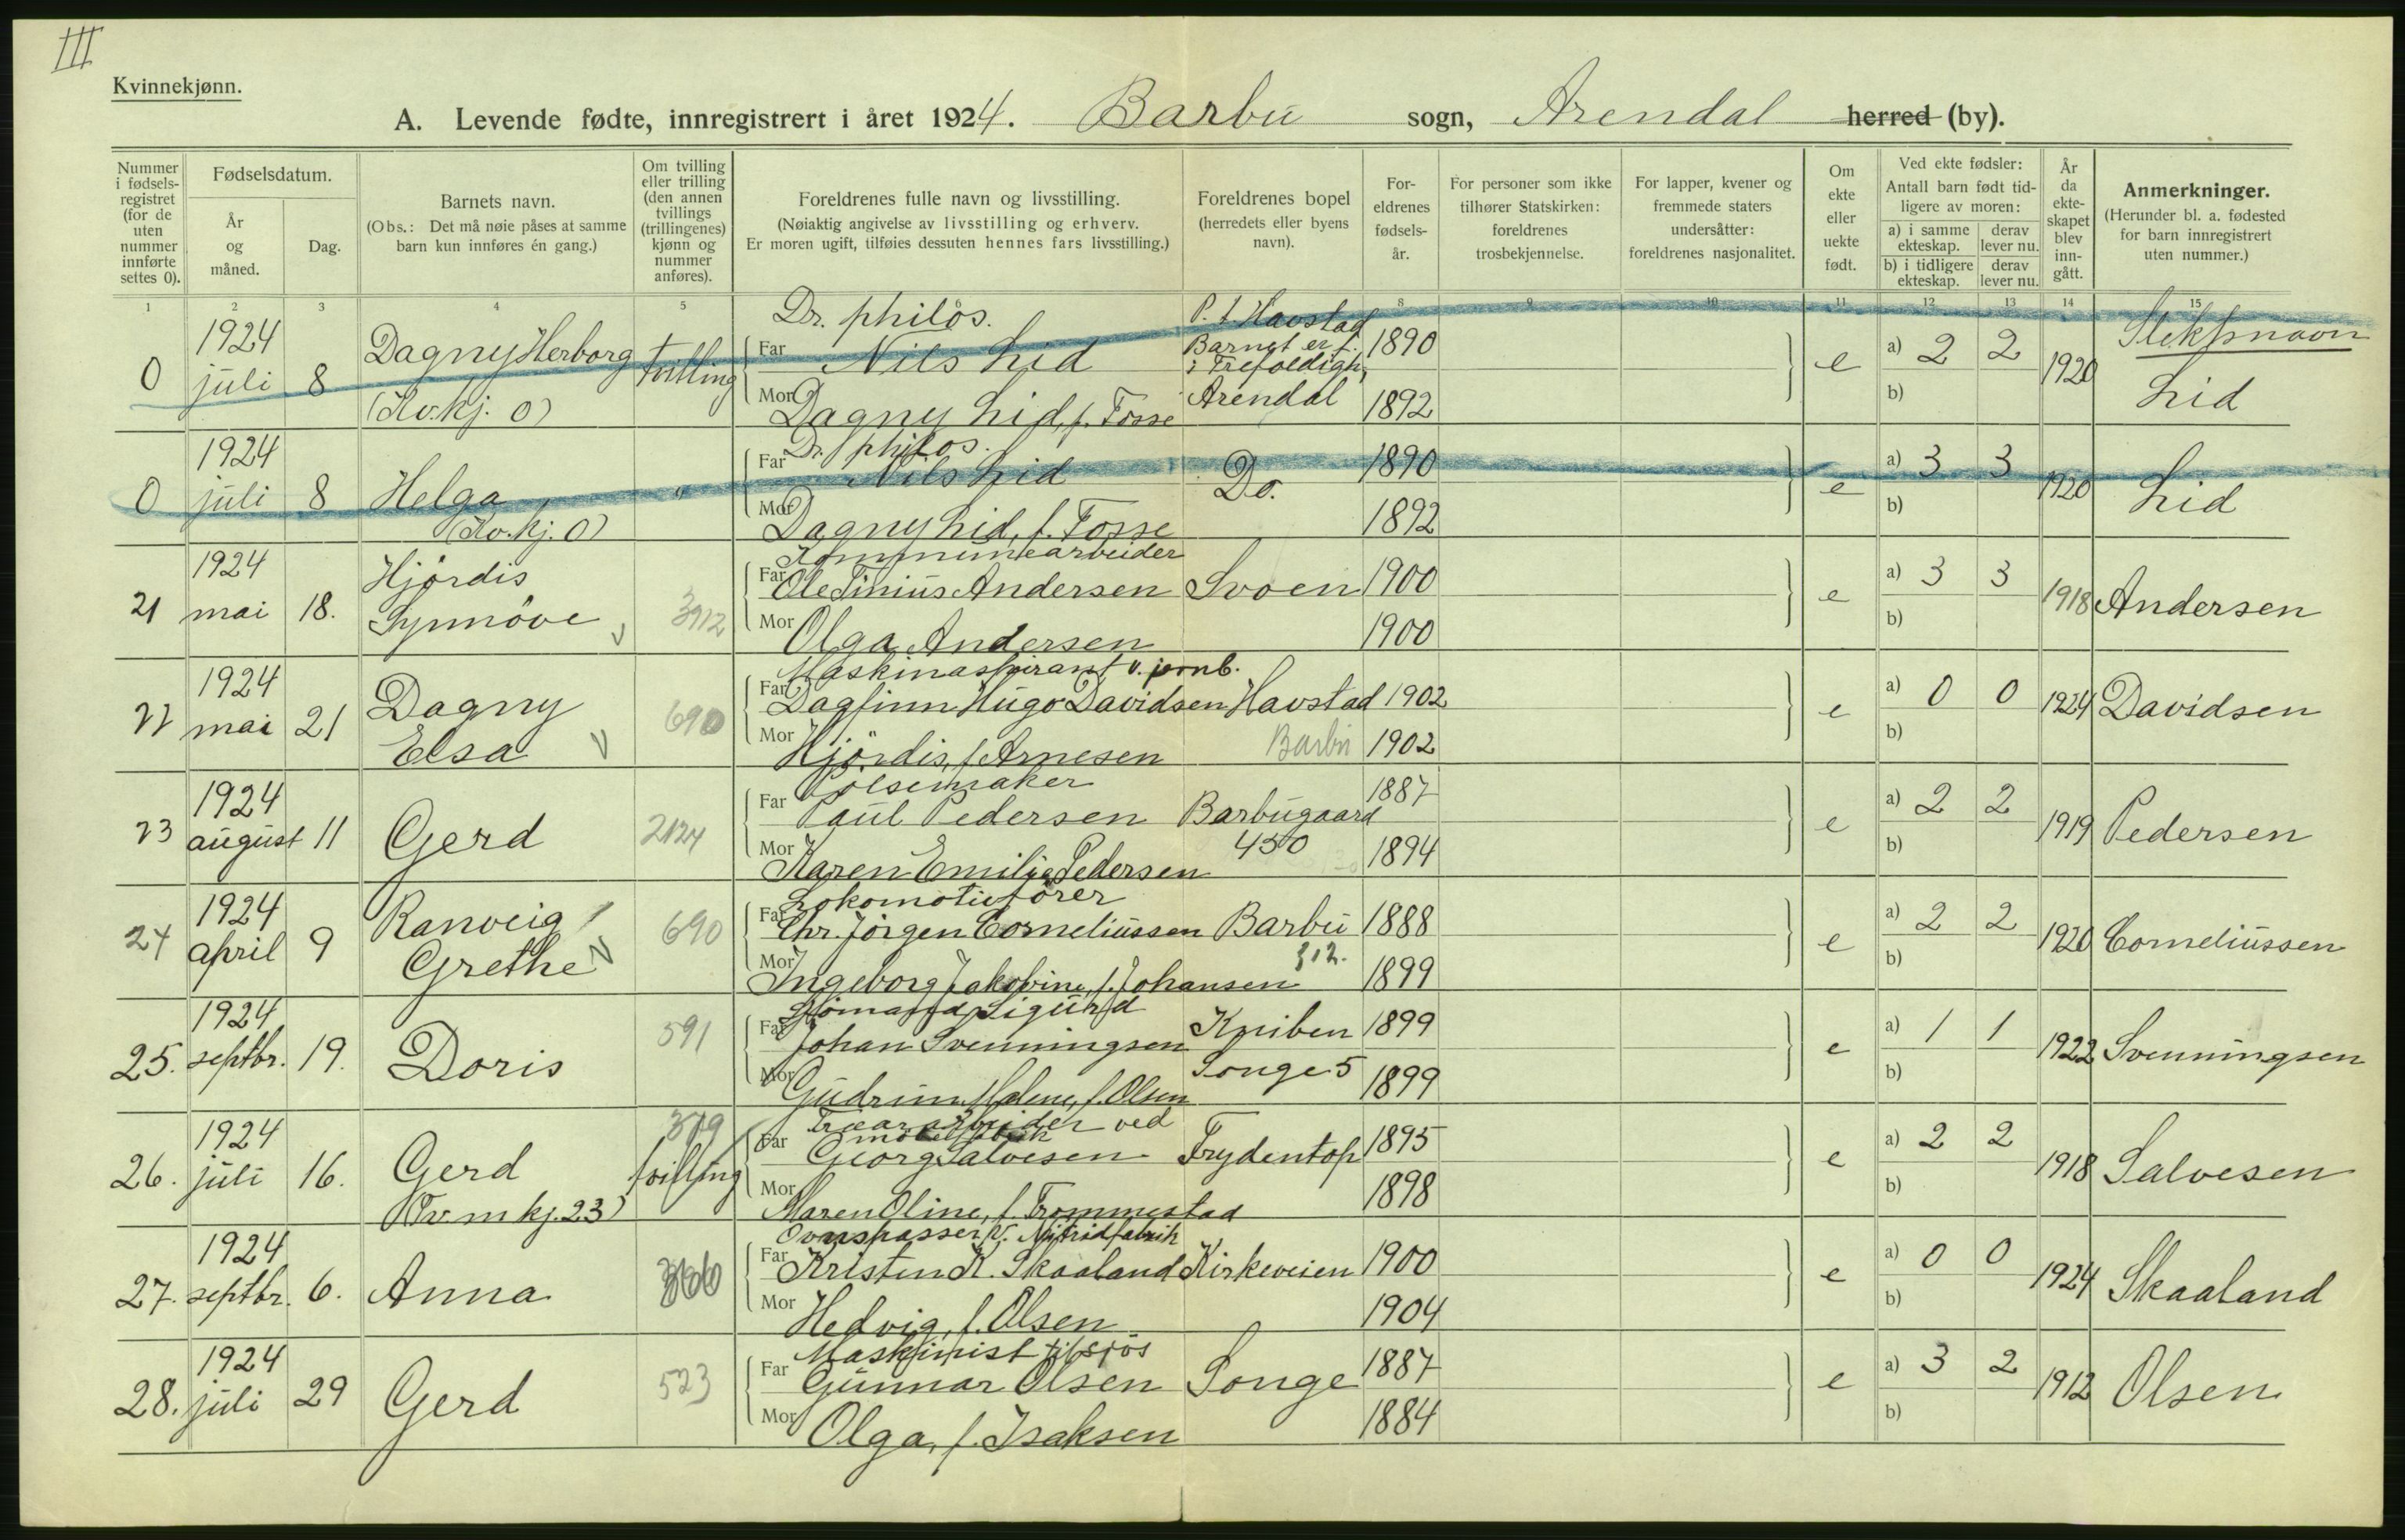 III
Kvinnekjønn.
A. Levende fødte, innregistrert i året 1924. Barbu sogn, Arendal herred (by).
Nummer i fødsels-registret (for de uten nummer innførte settes 0).
Fødselsdatum.
År og måned.
Dag.
Barnets navn.
(Obs.: Det må nøie påses at samme barn kun innføres én gang.)
Om tvilling eller trilling (den annen tvillings (trillingenes) kjønn og nummer anføres).
Foreldrenes fulle navn og livsstilling.
(Nøiaktig angivelse av livsstilling og erhverv.
Er moren ugift, tilføies dessuten hennes fars livsstilling.)
Foreldrenes bopel
(herredets eller byens navn).
For-eldrenes fødsels-år.
For personer som ikke tilhører Statskirken: foreldrenes trosbekjennelse.
For lapper, kvener og fremmede staters undersåtter: foreldrenes nasjonalitet.
Om ekte eller uekte født.
Ved ekte fødsler:
Antall barn født tid-ligere av moren:
a) i samme ekteskap.
derav lever nu.
b) i tidligere ekteskap.
derav lever nu.
År da ekte-skapet blev inn-gått.
Anmerkninger.
(Herunder bl. a. fødested for barn innregistrert uten nummer.)
1 2 3 4 5 8 9 10 11 12 13 14 15
0 1924 juli 8 Dagny Herborg (Kv.kj. 0) tvilling
Dr. philos.
Far Nils Lid
Mor Dagny Lid, f. Fosse
P. t. Havstad
Barnet er f. i Trefoldigh, Arendal
1890
1892
e a) 2 2 b) 1920
Slektsnavn
Lid
0 1924 juli 8 Helga (Kv.kj. 0) "
Dr. philos.
Far Nils Lid
Mor Dagny Lid, f. Fosse
Do.
1890
1892
e a) 3 3 b) 1920 Lid
21 1924 mai 18. Hjördis Synnöve 3912
Kommunearbeider
Far Ole Tinius Andersen
Mor Olga Andersen
Svoen
1900
1900
e a) 3 3 b) 1918 Andersen
22 1924 mai 21 Dagny Elsa 690
Maskinaspirant v. jernb.
Far Dagfinn Hugo Davidsen
Mor Hjördis, f. Arnesen
Havstad
Barbu
1902
1902
e a) 0 0 b) 1924 Davidsen
23 1924 august 11 Gerd 2124
Pölsemaker
Far Paul Pedersen
Mor Karen Emilie Pedersen
Barbugaard
450
1887
1894
e a) 2 2 b) 1919 Pedersen
24 1924 april 9 Ranveig Grethe 690
Lokomotivförer
Far Chr. Jörgen Corneliussen
Mor Ingeborg Jakobine, f. Johansen
Barbu
312.
1888
1899
e a) 2 2 b) 1920 Corneliussen
25. 1924 septbr. 19. Doris 591
Sjömand Sigurd
Far Johan Svenningsen
Mor Gudrun Malene, f. Olsen
Kniben
Songe 5
1899
1899
e a) 1 1 b) 1922 Svenningsen
26. 1924 juli 16. Gerd (Tv. m kj. 23) tvilling
ved
Far Georg Salvesen
Mor Maren Oline, f. Trommestad
Frydentop
1895
1898
e a) 2 2 b) 1918 Salvesen
27. 1924 septbr. 6. Anna
Ovnspasser v. Nitridfabrik
Far Kristen K. Skaaland
Mor Hedvig, f. Olsen
Kirkeveien
1900
1904
e a) 0 0 b) 1924 Skaaland
28. 1924 juli 29 Gerd 523
Maskinist tilsjös
Far Gunnar Olsen
Mor Olga, f. Isaksen
Songe
1887
1884
e a) 3 2 b) 1912 Olsen